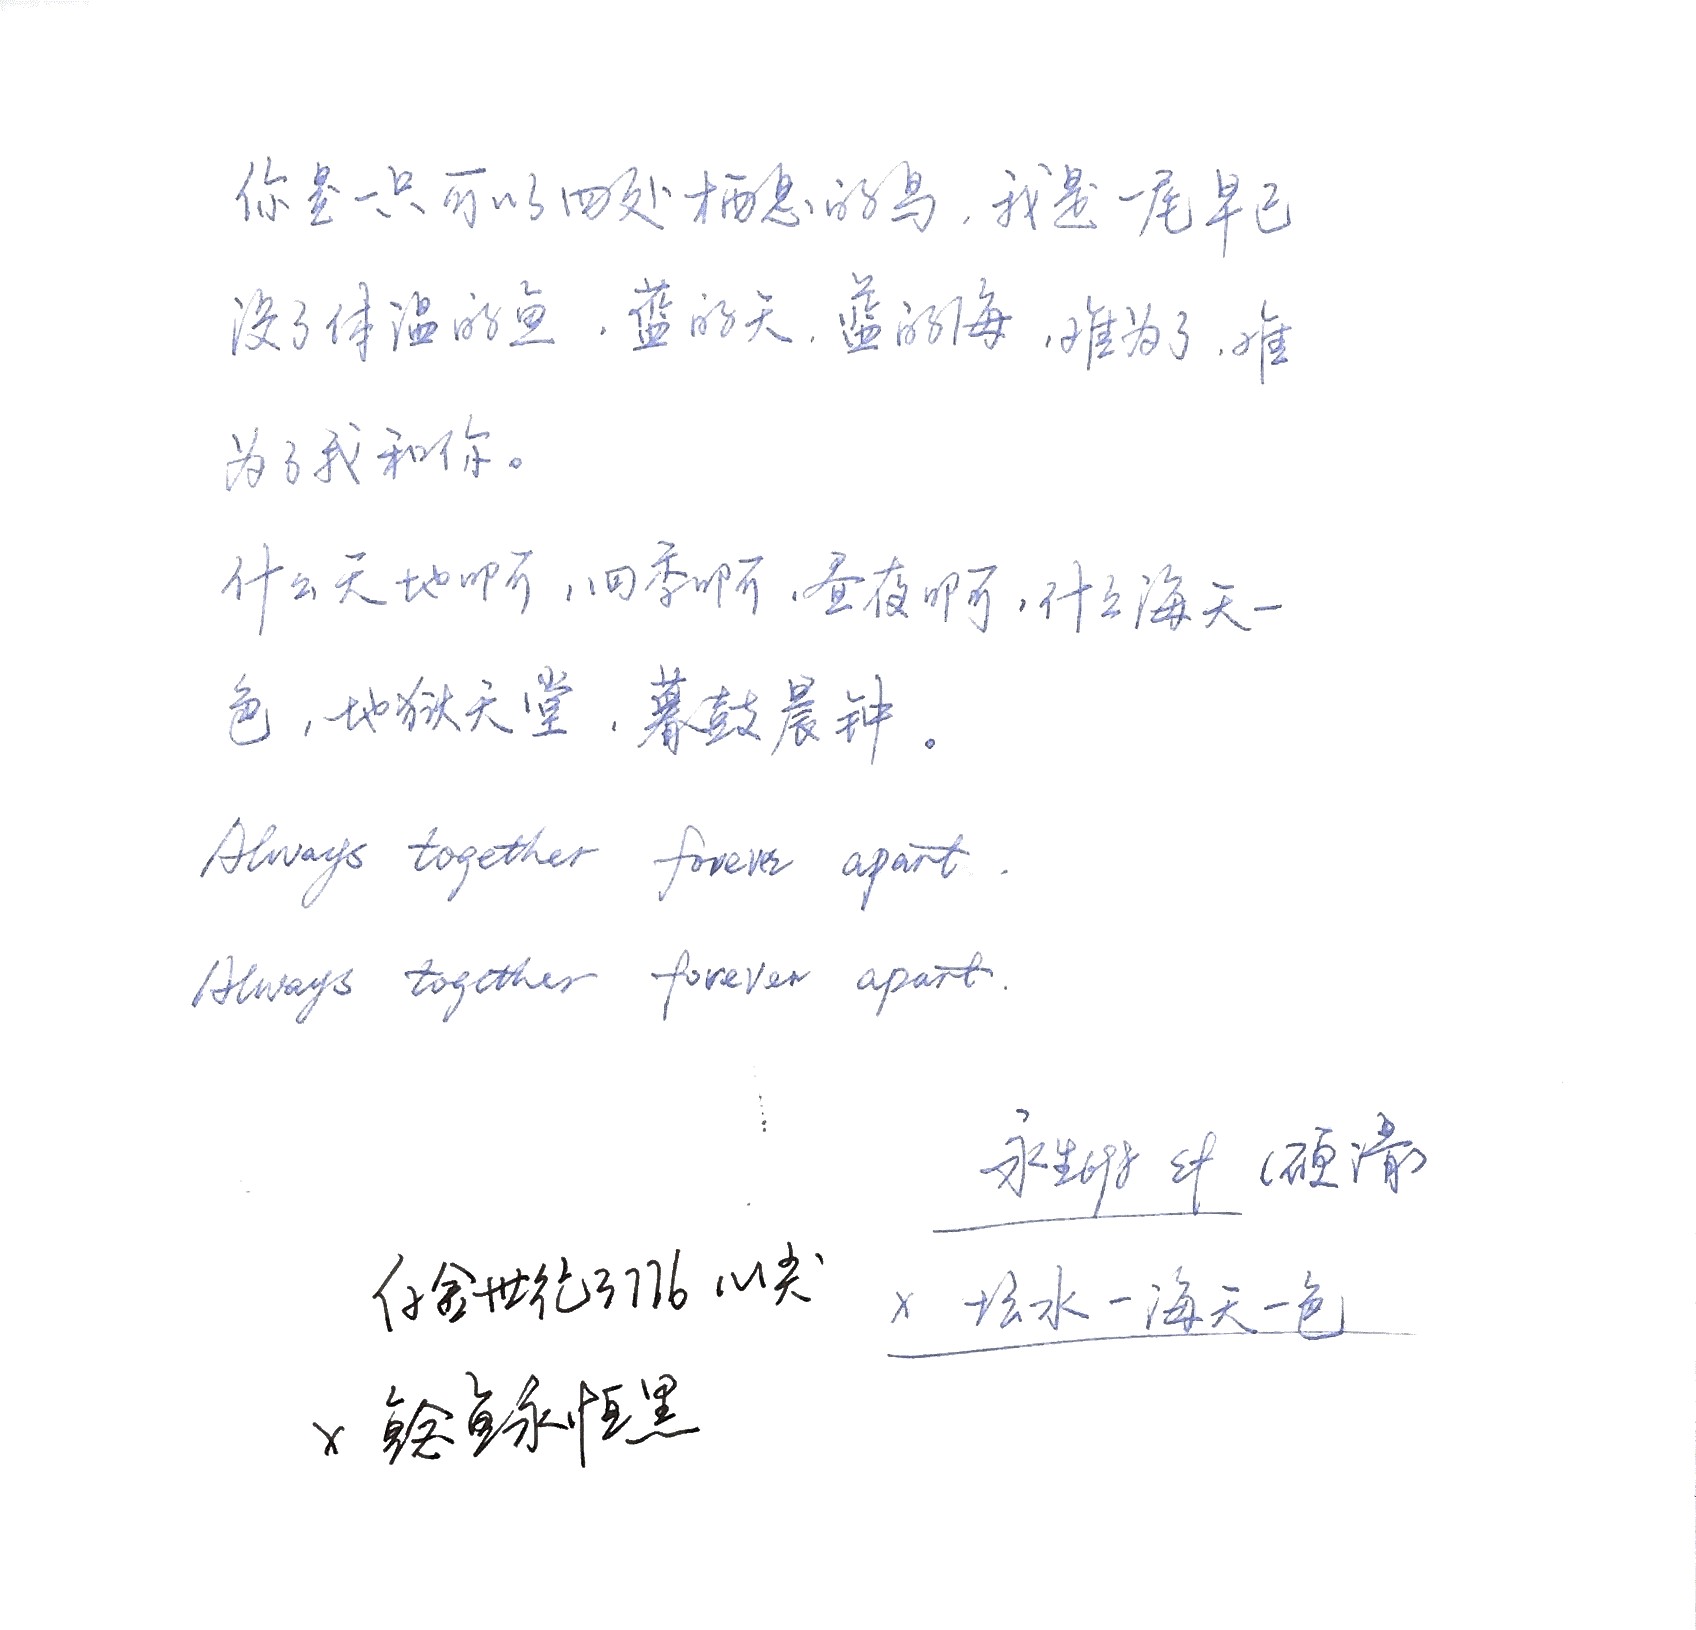 你是一只可以四处栖息的鸟，我是一尾早已
没了体温的鱼，蓝的天，蓝的海，难为了，难
为了我和你。
什么天地啊，四季啊，昼夜啊，什么海天一
色，地狱天堂，暮鼓晨钟。
Always together forever apart.
Always together forever apart.
永生 (硬滑)
x 坛水一海天一色
金世纪3776 M尖
x 鲶鱼永恒黑